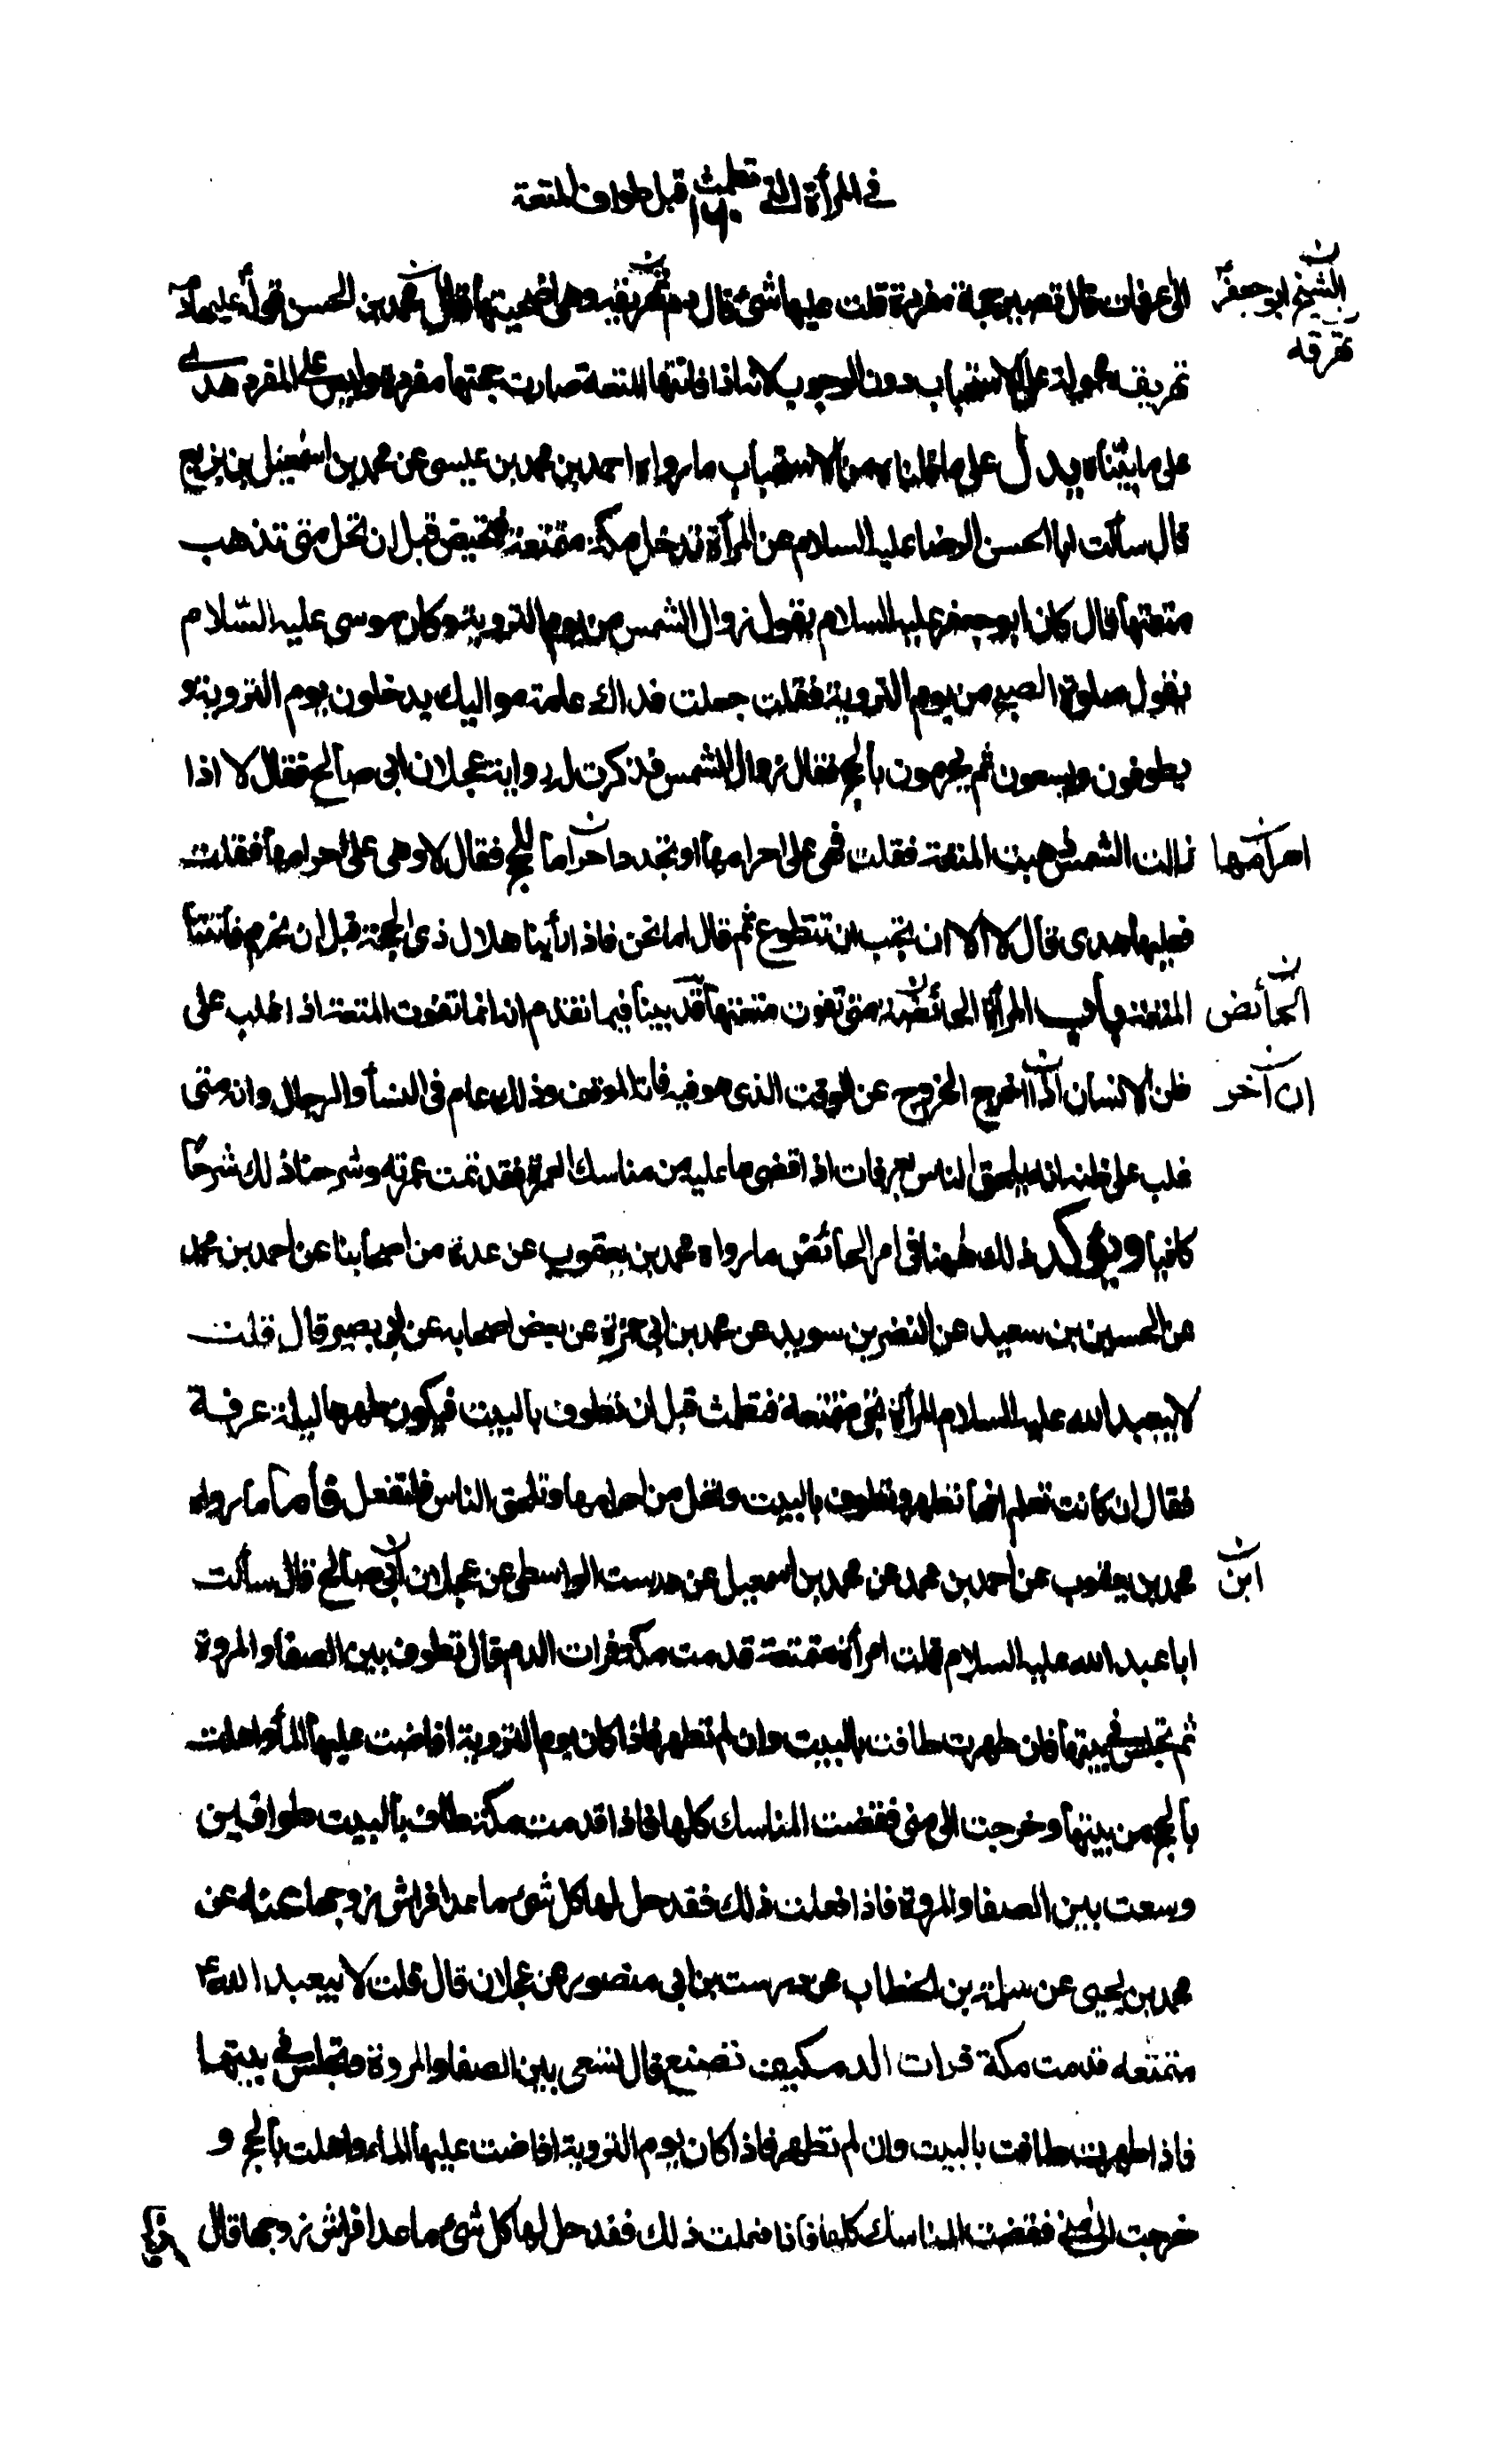 في المرأة التي تطمث قبل طواف المتعة
١٦٠
الى عرفات قال تصير حجة مفردة قلت عليها شئ قال دم تهريقه وهي اضحيتها قال محمد بن الحسن قوله عليها دم
الشيخ ابو جعفر
تهرقه
تهريقه محمولة على الاستحباب دون الوجوب لانه اذا فاتتها المتعة صارت حجتها مفردة وليس على المفرد هدى
على ما بيناه يدل على ما قلناه من الاستحباب ما رواه احمد بن محمد بن عيسى عن محمد بن اسمعيل بن بزيع
قال سألت ابا الحسن الرضا عليه السلام عن المرأة تدخل مكة متمتعة فتحيض قبل ان تحل متى تذهب
متعتها قال كان ابو جعفر عليه السلام يقول زوال الشمس من يوم التروية وكان موسى عليه السلام
يقول صلوة الصبح من يوم التروية فقلت جعلت فداك عامة مواليك يدخلون يوم التروية و
يطوفون ويسعون ثم يحرمون بالحج فقال زوال الشمس فذكرت له رواية عجلان ابي صالح فقال لا اذا
زالت الشمس ذهبت المتعة فقلت فهي على احرامها او تجدد احراما للحج فقال لا وهي على احرامها فقلت
احرامها
فعليها هدى قال لا الا ان تحب ان تتطوع ثم قال اما نحن فاذا رأينا هلال ذي الحجة قبل ان نحرم فاتتنا
المتعة باب المرأة الحائض متى تفوت متعتها قد بينا فيما تقدم انه انما تفوت المتعة اذا غلب على
الحائض
ظن الانسان انه ان اخر الخروج عن الوقت الذي هو فيه فاته الموقف وذلك عام في النساء والرجال وانه متى
ان آخر
غلب على ظنه انه يلحق الناس بعرفات اذا قضى ما عليه من مناسك العمرة فقد تمت عمرته وشرحنا ذلك شرحا
كافيا ويؤكد ذلك ههنا في امر الحائض ما رواه محمد بن يعقوب عن عدة من اصحابنا عن احمد بن محمد
عن الحسين بن سعيد عن النضر بن سويد عن محمد بن ابي حمزة عن بعض اصحابه عن ابي بصير قال قلت
لابيعبد الله عليه السلام المرأة تجئ متمتعة فتطمث قبل ان تطوف بالبيت فيكون طهرها ليلة عرفة
فقال ان كانت تعلم انها تطهر وتطوف بالبيت وتحل من احرامها وتلحق الناس فلتفعل فأما ما رواه
محمد بن يعقوب عن احمد بن محمد عن محمد بن اسمعيل عن درست الواسطي عن عجلان ابي صالح قال سألت
ابن
ابا عبد الله عليه السلام قلت امرأة متمتعة قدمت مكة فرات الدم قال تطوف بين الصفا والمروة
ثم تجلس في بيتها فان طهرت طافت بالبيت وان لم تطهر فاذا كان يوم التروية افاضت عليها الماء واهلت
بالحج من بيتها وخرجت الى منى فقضت المناسك كلها فاذا قدمت مكة طافت بالبيت طوافين
وسعت بين الصفا والمروة فاذا فعلت ذلك فقد حل لها كل شئ ما عدا فراش زوجها عنه عن
محمد بن يحيى عن سلمة بن الخطاب عن درست بن ابي منصور عن عجلان قال قلت لابيعبد الله ع
متمتعه قدمت مكة فرات الدم كيف تصنع قال تسعى بين الصفا والمروة وتجلس في بيتها
فاذا طهرت طافت بالبيت وان لم تطهر فاذا كان يوم التروية افاضت عليها الماء واهلت بالحج و
خرجت الى منى فقضت المناسك كلها فاذا فعلت ذلك فقد حل لها كل شئ ما عدا فراش زوجها قال